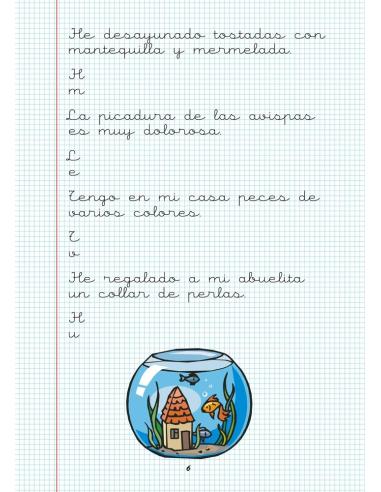 He desayunado tostadas con
mantequilla y mermelada.
H
m
La picadura de las avispas
es muy dolorosa.
L
e
Tengo en mi casa peces de
varios colores.
T
v
He regalado a mi abuelita
un collar de perlas.
H
u
6